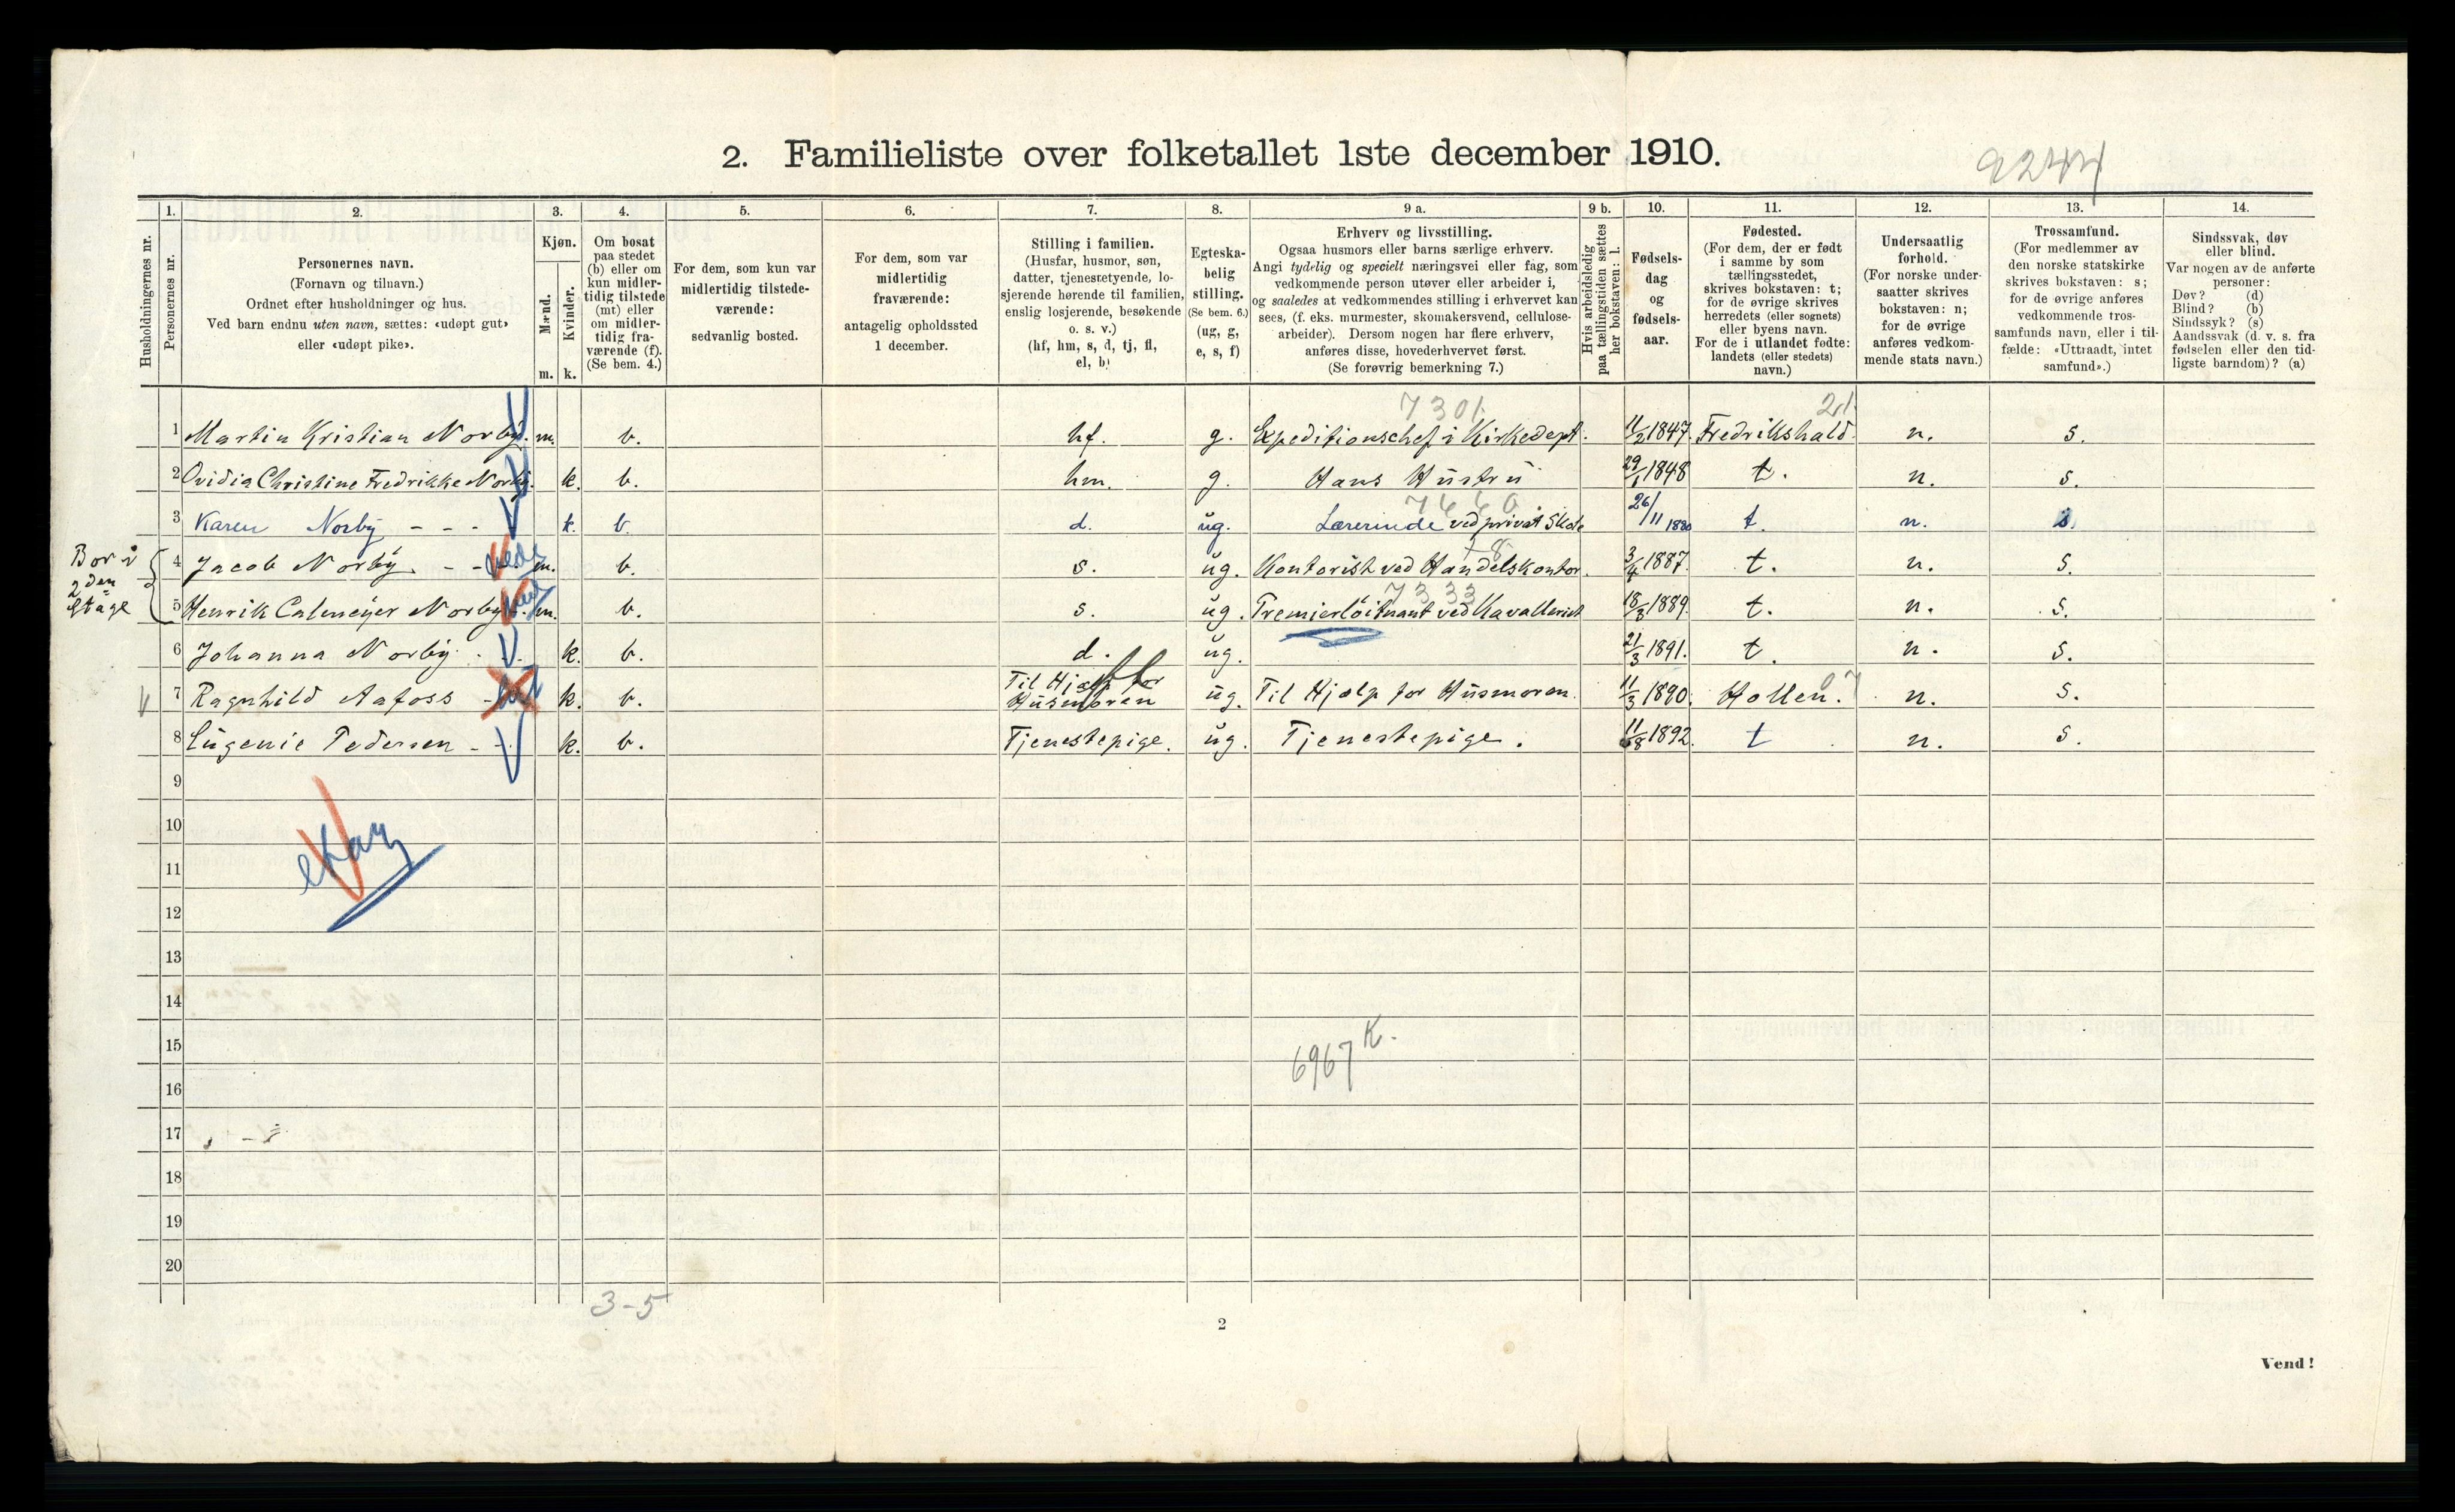 2. Familieliste over folketallet 1ste december 1910.
9244
1. 2. 3. 4. 5. 6. 7. 8. 9 a. 9 b. 10. 11. 12. 13. 14.
Husholdningernes nr.
Personernes nr.
Personernes navn.
(Fornavn og tilnavn.)
Ordnet efter husholdninger og hus.
Ved barn endnu uten navn, sættes: «udøpt gut»
eller «udøpt pike».
Kjøn.
Mænd.
Kvinder.
m. k.
Om bosat
paa stedet
(b) eller om
kun midler-
tidig tilstede
(mt) eller
om midler-
tidig fra-
værende (f).
(Se bem. 4.)
For dem, som kun var
midlertidig tilstede-
værende:
sedvanlig bosted.
For dem, som var
midlertidig
fraværende:
antagelig opholdssted
1 december.
Stilling i familien.
(Husfar, husmor, søn,
datter, tjenestetyende, lo-
sjerende hørende til familien,
enslig losjerende, besøkende
o. s. v.)
(hf, hm, s, d, tj, fl,
el, b)
Egteska-
belig
stilling.
(Se bem. 6.)
(ug, g,
e, s, f)
Erhverv og livsstilling.
Ogsaa husmors eller barns særlige erhverv.
Angi tydelig og specielt næringsvei eller fag, som
vedkommende person utøver eller arbeider i,
og saaledes at vedkommendes stilling i erhvervet kan
sees, (f. eks. murmester, skomakersvend, cellulose-
arbeider). Dersom nogen har flere erhverv,
anføres disse, hovederhvervet først.
(Se forøvrig bemerkning 7.)
Hvis arbeidsledig
paa tællingstiden sættes
her bokstaven: l.
Fødsels-
dag
og
fødsels-
aar.
Fødested.
(For dem, der er født
i samme by som
tællingsstedet,
skrives bokstaven: t;
for de øvrige skrives
herredets (eller sognets)
eller byens navn.
For de i utlandet fødte:
landets (eller stedets)
navn.)
Undersaatlig
forhold.
(For norske under-
saatter skrives
bokstaven: n;
for de øvrige
anføres vedkom-
mende stats navn.)
Trossamfund.
(For medlemmer av
den norske statskirke
skrives bokstaven: s;
for de øvrige anføres
vedkommende tros-
samfunds navn, eller i til-
fælde: «Uttraadt, intet
samfund».)
Sindssvak, døv
eller blind.
Var nogen av de anførte
personer:
Døv? (d)
Blind? (b)
Sindssyk? (s)
Aandssvak (d. v. s. fra
fødselen eller den tid-
ligste barndom)? (a)
7301. 21.
1 Martin Kristian Norby. m. b. hf. g. Expeditionschef i Kirkedept. 11/2 1847. Fredrikshald. n. s.
2 Ovidia Christine Fredrikke Norby. k. b. hm. g. Hans Hustru 29/1 1848 t. n. s.
3 Karen Norby - - - k. b. d. ug. Lærerinde ved privat Skole 26/11 1880 t. n. s.
Bor i
2den
Etage
4 Jacob Norby. - - m. b. s. ug. Kontorist ved Handelskontor. 3/4 1887. t. n. s.
7333
5 Henrik Calmeyer Norby. m. b. s. ug. Premierløitnant ved Kavalleriet 18/3 1889. t. n. s.
6 Johanna Norby. k. b. d. ug. 21/3 1891. t. n. s.
7 Ragnhild Aafoss - k. b. Til Hjælp for Husmoren ug. Til Hjælp for Husmoren. 11/3 1890. Hollen. n. s.
8 Eugenie Pedersen - - k. b. Tjenestepige. ug. Tjenestepige. 11/8 1892. t n. s.
9
10
11
12
13
14
15
6967 K.
16
17
18
19
20
3-5
2
Vend!